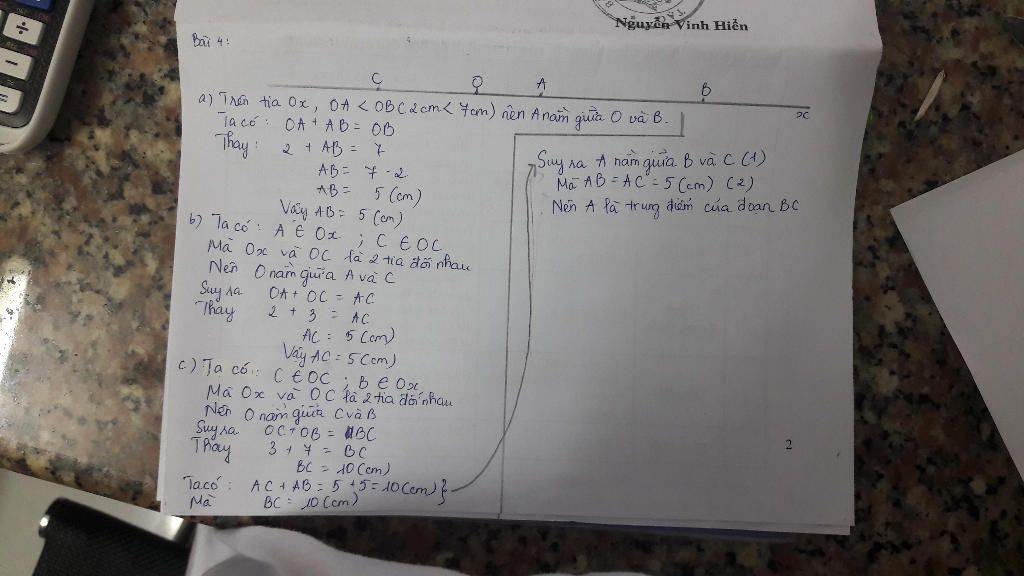 Nguyễn Vinh Hiển
Bài 4:
C O A B
x
a) Trên tia Ox, OA < OB (2cm < 7cm) nên A nằm giữa O và B.
Ta có: OA + AB = OB
Thay: 2 + AB = 7
AB = 7 - 2
AB = 5 (cm)
Vậy AB = 5 (cm)
b) Ta có: A ∈ Ox ; C ∈ OC
Mà Ox và OC là 2 tia đối nhau
Nên O nằm giữa A và C
Suy ra OA + OC = AC
Thay 2 + 3 = AC
AC = 5 (cm)
Vậy AC = 5 (cm)
c) Ta có: C ∈ OC ; B ∈ Ox
Mà Ox và OC là 2 tia đối nhau
Nên O nằm giữa C và B
Suy ra OC + OB = BC
Thay 3 + 7 = BC
BC = 10 (cm)
Ta có: AC + AB = 5 + 5 = 10 (cm) }
Mà BC = 10 (cm)
Suy ra A nằm giữa B và C (1)
Mà AB = AC = 5 (cm) (2)
Nên A là trung điểm của đoạn BC
2